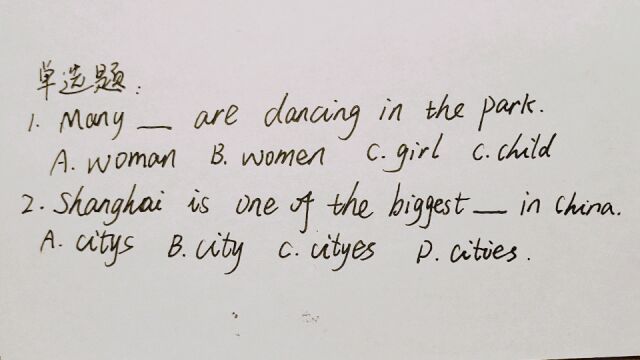 单选题:
1. Many __ are dancing in the park.
A. woman B. women C. girl C. child
2. Shanghai is one of the biggest __ in China.
A. citys B. city C. cityes D. cities.